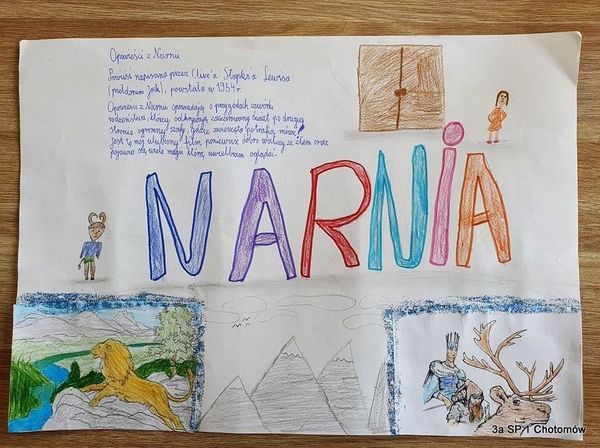 Opowieści z Narnii
Powieść napisana przez Clive'a Staples'a Lewisa
(pseldonim Jack), powstała w 1954r.
Opowieści z Narnii opowiadają o przygodach czwórki
rodzeństwa, którzy odkrywają zaczarowany świat po drugiej
stronie ogromnej szafy, gdzie zwierzęta potrafią mówić!
Jest to mój ulubiony film ponieważ dobro walczy ze złem oraz
pojawia się wiele magii którą uwielbiam oglądać.
NARNiA
3a SP 1 Chotomów